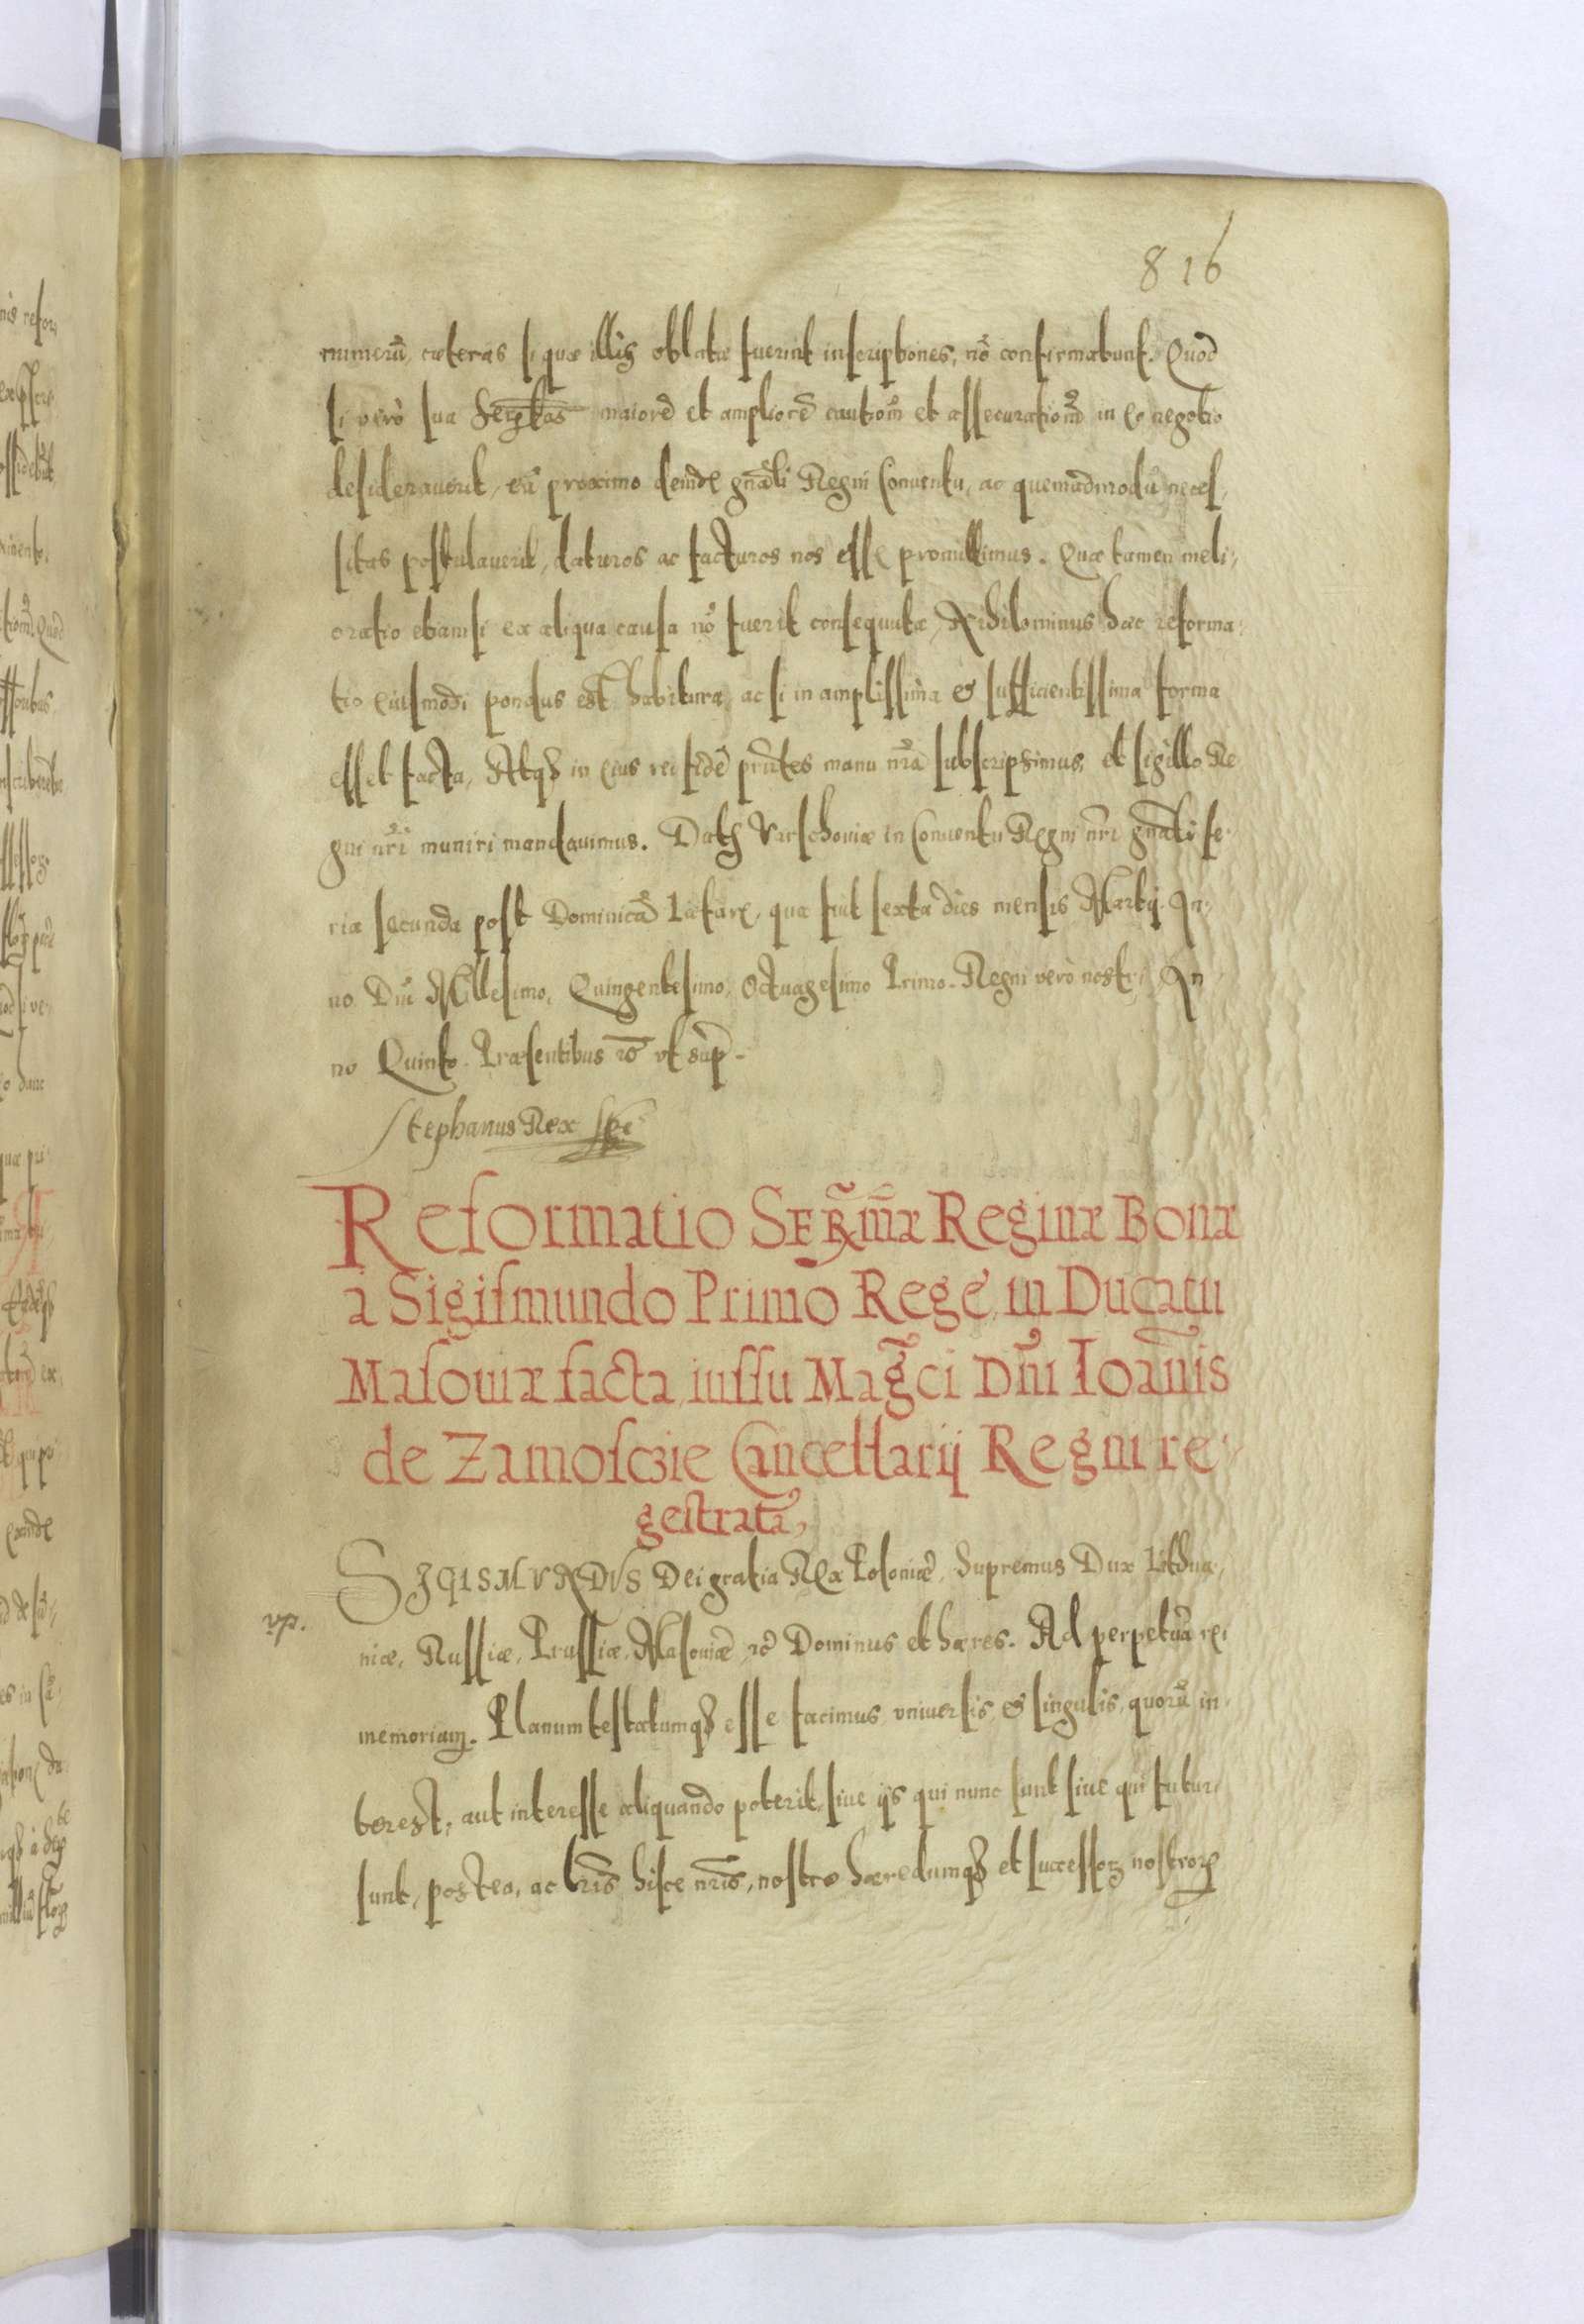 816
numerũ, cæteras si quæ illis oblatæ fuerint inscriptiones, nõ confirmabunt. Quod
si verò sua Sertas maiorẽ et ampliorẽ cautionẽ et assecurationẽ in eo negotio
desideraverit, eã proximo deinde gnãli Regni Conventu, ac quemadmodũ neces,
sitas postulaverit, daturos ac facturos nos esse promittimus. Quæ tamen meli,
oratio etiamsi ex aliqua causa nõ fuerit consequuta, Nihilominus hæc reforma,
tio eiusmodi pondus est habitura, ac si in amplissima & sufficientissima forma
esset facta, Atqȝ in eius rei fidẽ pñtes manu nrã subscripsimus, et sigillo Re,
gni nrĩ muniri mandavimus. Datȝ Varschoviæ in Conventu Regni nrĩ gnãli fe,
ria secunda post Dominicã Lætare, quæ fuit sexta dies mensis Martij. An,
no Dnĩ Millesimo, Quingentesimo, Octuagesimo Primo. Regni verò nostri An
no Quinto. Præsentibus rõ vt sup̃.
Stephanus Rex sst
Reformatio Serm̃æ Reginæ Bonæ
a Sigismundo Primo Rege, in Ducatu
Masoviæ facta, iussu Mag̃ci Dnĩ Ioañis
de Zamosczie Cancellarij Regni re,
gestrata,
SIGISMVNDVS Dei gratia Rex Poloniæ, Supremus Dux Lithua,
vp.
niæ, Russiæ, Prussiæ, Masoviæ, rc̃ Dominus et hæres. Ad perpetuã rei
memoriam. Planum testatumqȝ esse facimus vniversis, & singulis, quorũ in,
terest, aut interesse aliquando poterit, sive ijs qui nunc sunt sive qui futuri
sunt, postea, ac lrĩs hisce nrĩs, nostro hæredumqȝ et successorȝ nostrorȝ